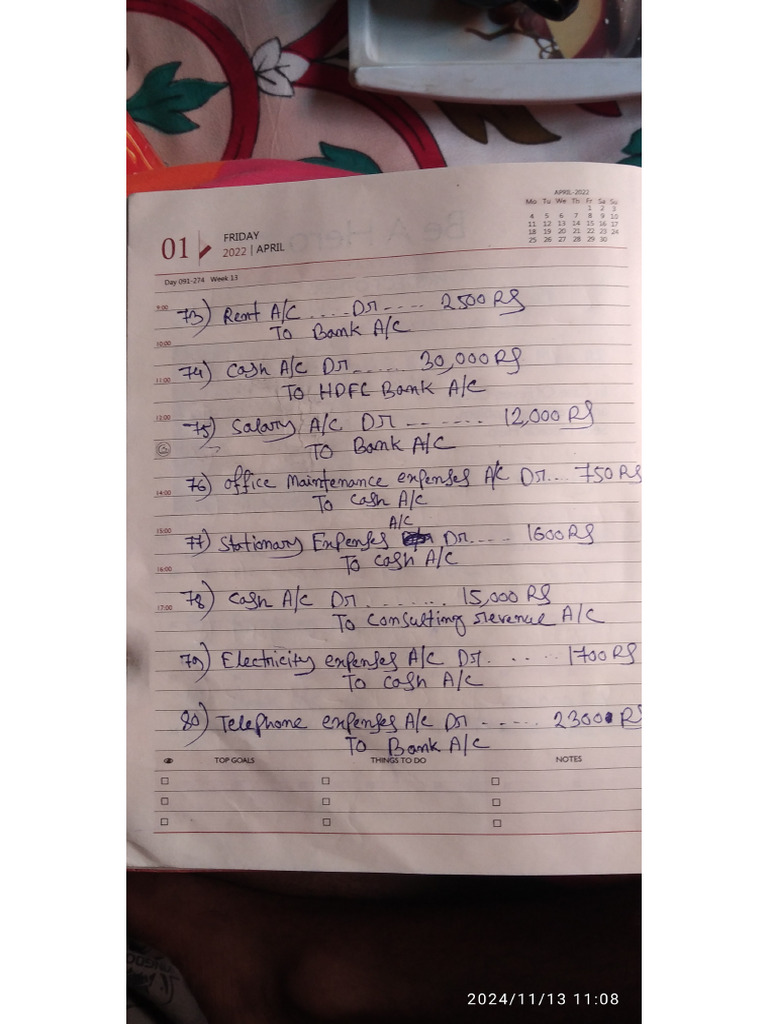 APRIL-2022
Mo Tu We Th Fr Sa Su
1 2 3
4 5 6 7 8 9 10
11 12 13 14 15 16 17
18 19 20 21 22 23 24
25 26 27 28 29 30
01 FRIDAY
2022 | APRIL
Day 091-274 Week 13
9:00
73) Rent A/C .... Dr .... 2500 RS
To Bank A/C
10:00
74) Cash A/C Dr ...... 30,000 RS
11:00
To HDFC Bank A/C
12:00
75) Salary A/C Dr ....... 12,000 RS
To Bank A/C
76) Office Maintenance expenses A/C Dr... 750 RS
14:00
To cash A/C
15:00
A/C
77) Stationary Expenses Dr.... 1600 RS
To cash A/C
16:00
78) Cash A/C Dr ........ 15,000 RS
17:00
To Consulting revenue A/C
79) Electricity expenses A/C Dr. ..... 1700 RS
To cash A/C
80) Telephone expenses A/C Dr ...... 2300 RS
To Bank A/C
TOP GOALS THINGS TO DO NOTES
2024/11/13 11:08